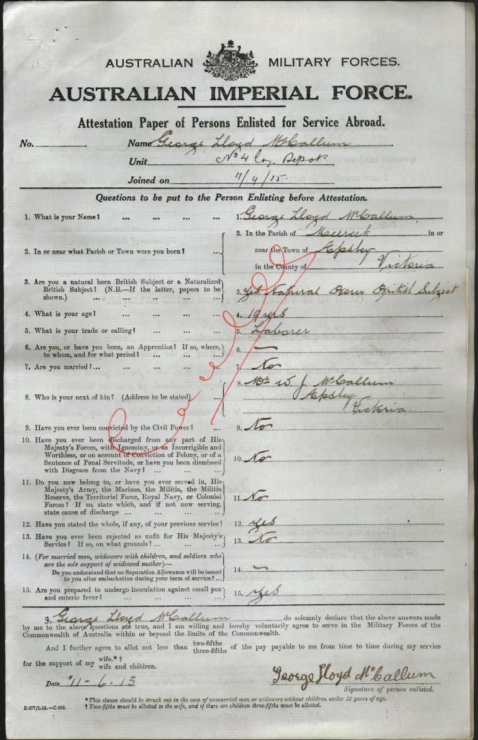 AUSTRALIAN MILITARY FORCES.
AUSTRALIAN IMPERIAL FORCE.
Attestation Paper of Persons Enlisted for Service Abroad.
No. Name George Lloyd McCallum
Unit No 4 Coy Depot
Joined on 11/4/15
Questions to be put to the Person Enlisting before Attestation.
1. What is your Name? ... ... ... 1. George Lloyd McCallum
2. In or near what Parish or Town were you born? ... 2. In the Parish of in or
near the Town of Apsley
in the County of Victoria
3. Are you a natural born British Subject or a Naturalized British Subject? (N.B.—If the latter, papers to be shown.) ... 3. Yes Natural Born British Subject
4. What is your age? ... 4. 19 yrs
5. What is your trade or calling? ... 5. Laborer
6. Are you, or have you been, an Apprentice? If so, where, to whom, and for what period? ... 6. —
7. Are you married? ... 7. No
8. Who is your next of kin? (Address to be stated) ... 8. W. J. McCallum
Apsley
Victoria
9. Have you ever been convicted by the Civil Power? ... 9. No
10. Have you ever been discharged from any part of His Majesty's Forces, with Ignominy, or as Incorrigible and Worthless, or on account of Conviction of Felony, or of a Sentence of Penal Servitude, or have you been dismissed with Disgrace from the Navy? ... 10. No
11. Do you now belong to, or have you ever served in, His Majesty's Army, the Marines, the Militia, the Militia Reserve, the Territorial Force, Royal Navy, or Colonial Forces? If so, state which, and if not now serving, state cause of discharge ... 11. No
12. Have you stated the whole, if any, of your previous service? 12. Yes
13. Have you ever been rejected as unfit for His Majesty's Service? If so, on what grounds? ... 13. No
14. (For married men, widowers with children, and soldiers who are the sole support of widowed mother)—
Do you understand that no Separation Allowance will be issued to you after embarkation during your term of service? ... 14. —
15. Are you prepared to undergo inoculation against small pox and enteric fever? ... 15. Yes
I, George Lloyd McCallum do solemnly declare that the above answers made
by me to the above questions are true, and I am willing and hereby voluntarily agree to serve in the Military Forces of the
Commonwealth of Australia within or beyond the limits of the Commonwealth.
And I further agree to allot not less than two-fifths three-fifths of the pay payable to me from time to time during my service
for the support of my wife.*† wife and children.
Date 11-6-15 George Lloyd McCallum
Signature of person enlisted.
*This clause should be struck out in the case of unmarried men or widowers without children under 18 years of age.
† Two-fifths must be allotted to the wife, and if there are children three-fifths must be allotted.